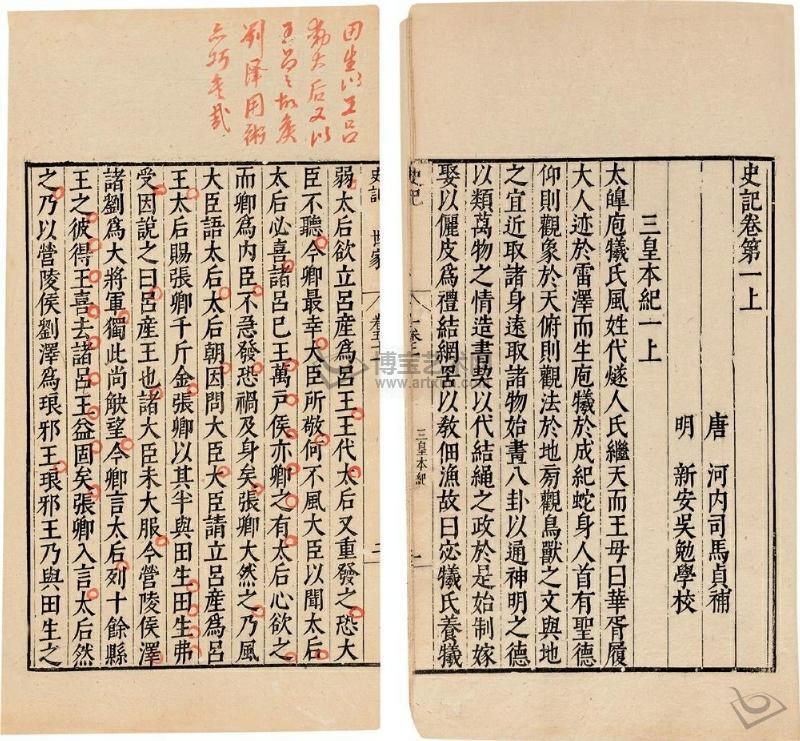 史記卷第一上
唐 河内司馬貞補
明 新安吳勉學校
三皇本紀一上
太皥庖犧氏風姓代燧人氏繼天而王母曰華胥履
大人迹於雷澤而生庖犧於成紀蛇身人首有聖德
仰則觀象於天俯則觀法於地旁觀鳥獸之文與地
之宜近取諸身遠取諸物始畫八卦以通神明之德
以類萬物之情造書契以代結繩之政於是始制嫁
娶以儷皮爲禮結網罟以敎佃漁故曰宓犧氏養犧
史記
三皇本紀
一
田生以王呂
勸太后又以
王呂之故
劉澤用術
亦巧矣哉
史記 世家
二
弱太后欲立呂産爲呂王王代太后又重發之恐大
臣不聽今卿最幸大臣所敬何不風大臣以聞太后
太后必喜諸呂已王萬戶侯亦卿之有太后心欲之
而卿爲内臣不急發恐禍及身矣張卿大然之乃風
大臣語太后太后朝因問大臣大臣請立呂産爲呂
王太后賜張卿千斤金張卿以其半與田生田生弗
受因說之曰呂産王也諸大臣未大服今營陵侯澤
諸劉爲大將軍獨此尚觖望今卿言太后列十餘縣
王之彼得王喜去諸呂王益固矣張卿入言太后然
之乃以營陵侯劉澤爲琅邪王琅邪王乃與田生之